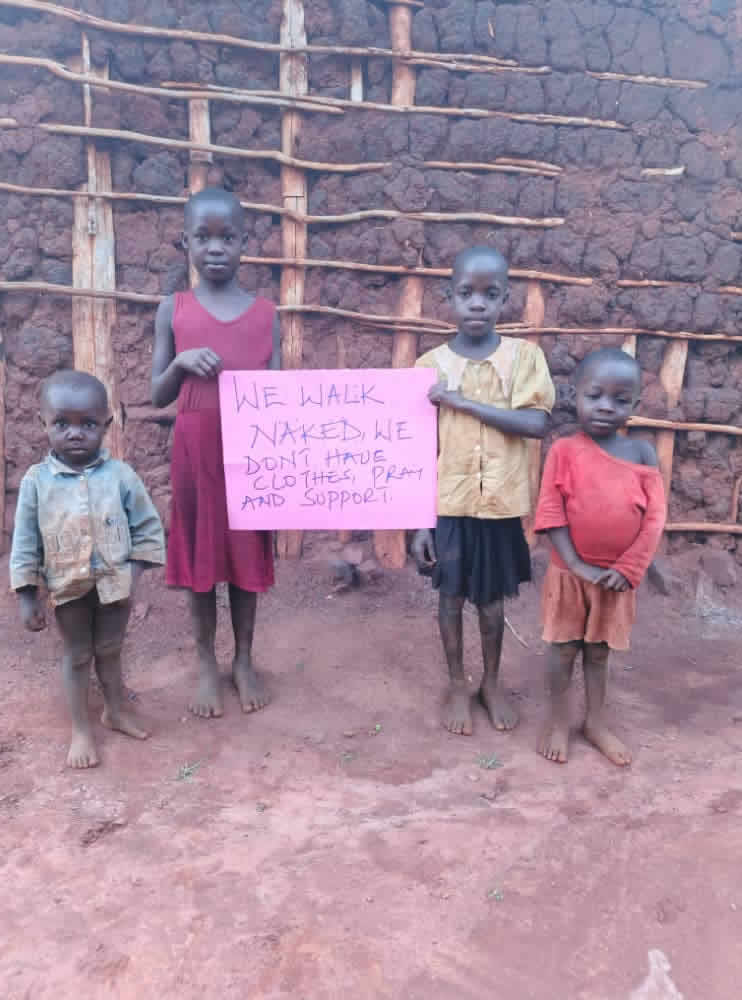 WE WALK
NAKED, WE
DON'T HAVE
CLOTHES, PRAY
AND SUPPORT.